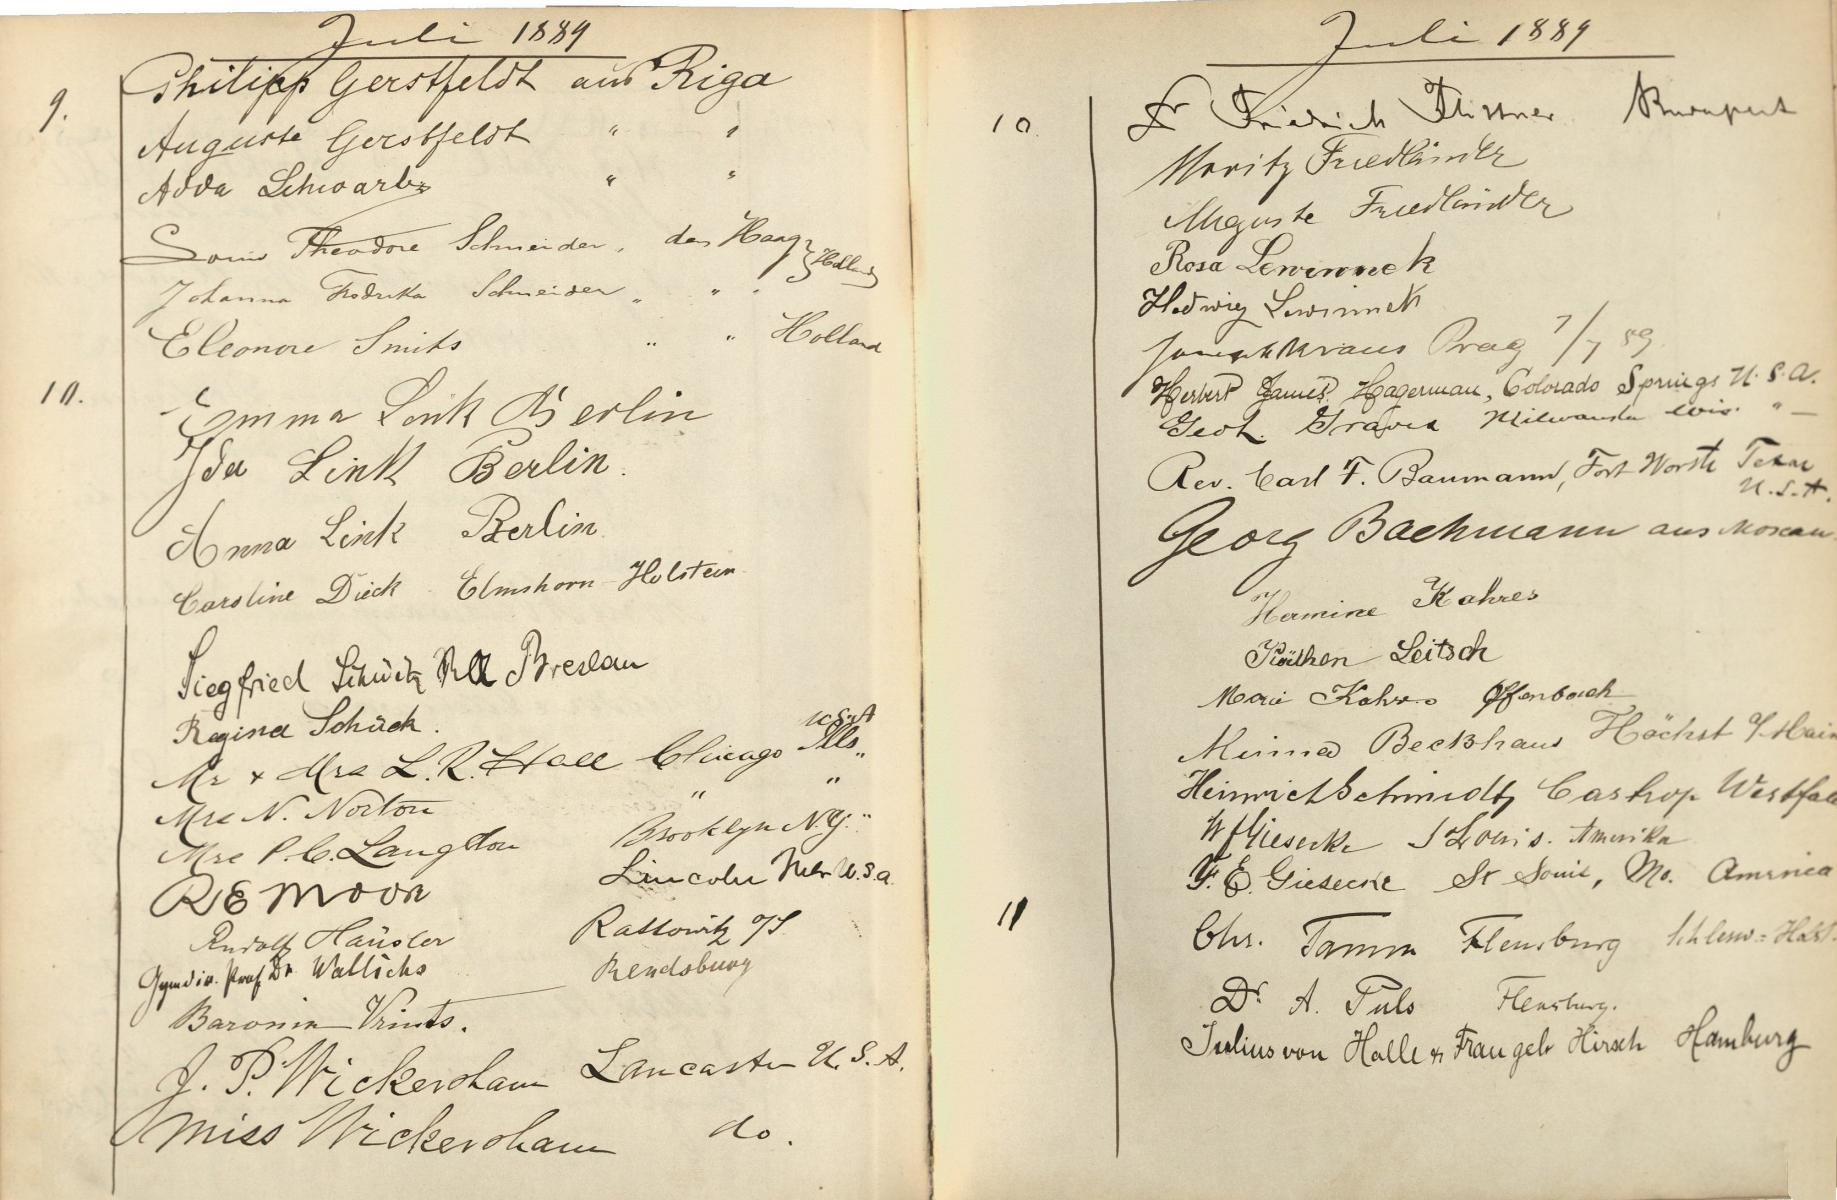 Juli 1889
9. Philipp Gerstfeldt aus Riga
Auguste Gerstfeldt " "
Adda Schwartz " "
Louis Theodore Schneider, den Haag Holland
Johanna Schneider " " "
Eleonore Smits " " Holland
10. Emma Link Berlin
Ida Link Berlin.
Anna Link Berlin
Caroline Dieck Elmshorn Holstein
Siegfried Breslau
Regina Schück.
Mr & Mrs L. R. Hall Chicago Ills. U.S.A
Mrs N. Norton " "
Mrs P. C. Langdon Brooklyn N.Y. "
R E Moon Lincoln Nebr U.S.a.
Rudolf Häusler Kattowitz O/S
Gymdir. Prof. Dr Wallichs Rendsburg
Baronin Vrints.
J. P. Wickersham Lancaster U. S. A.
Miss Wickersham do.
Juli 1889
10. Dr Friedrich Budapest
Moritz Friedländer
Auguste Friedländer
Rosa Lewinnek
Hedwig Lewinnek
Joseph Kraus Prag 7/7 89.
Herbert James Hagerman, Colorado Springs U.S.A.
Geo. Graves Milwaukee Wis. " —
Rev. Carl F. Baumann, Fort Worth Texas
U.S.A.
Georg Bachmann aus Moscau
Hermine Kahres
Käthen Leitsch
Marie Kahres Offenbach
Minna Beckhaus Höchst a/Main
Heinrich Schmidt, Castrop Westfale
W f Giesecke S Louis. Amerika
F. E. Giesecke St Louis, Mo. America
11 Chr. Tamm Flensburg Schlesw=Holst.
Dr. A. Puls Flensburg.
Julius von Halle & Frau geb Hirsch Hamburg